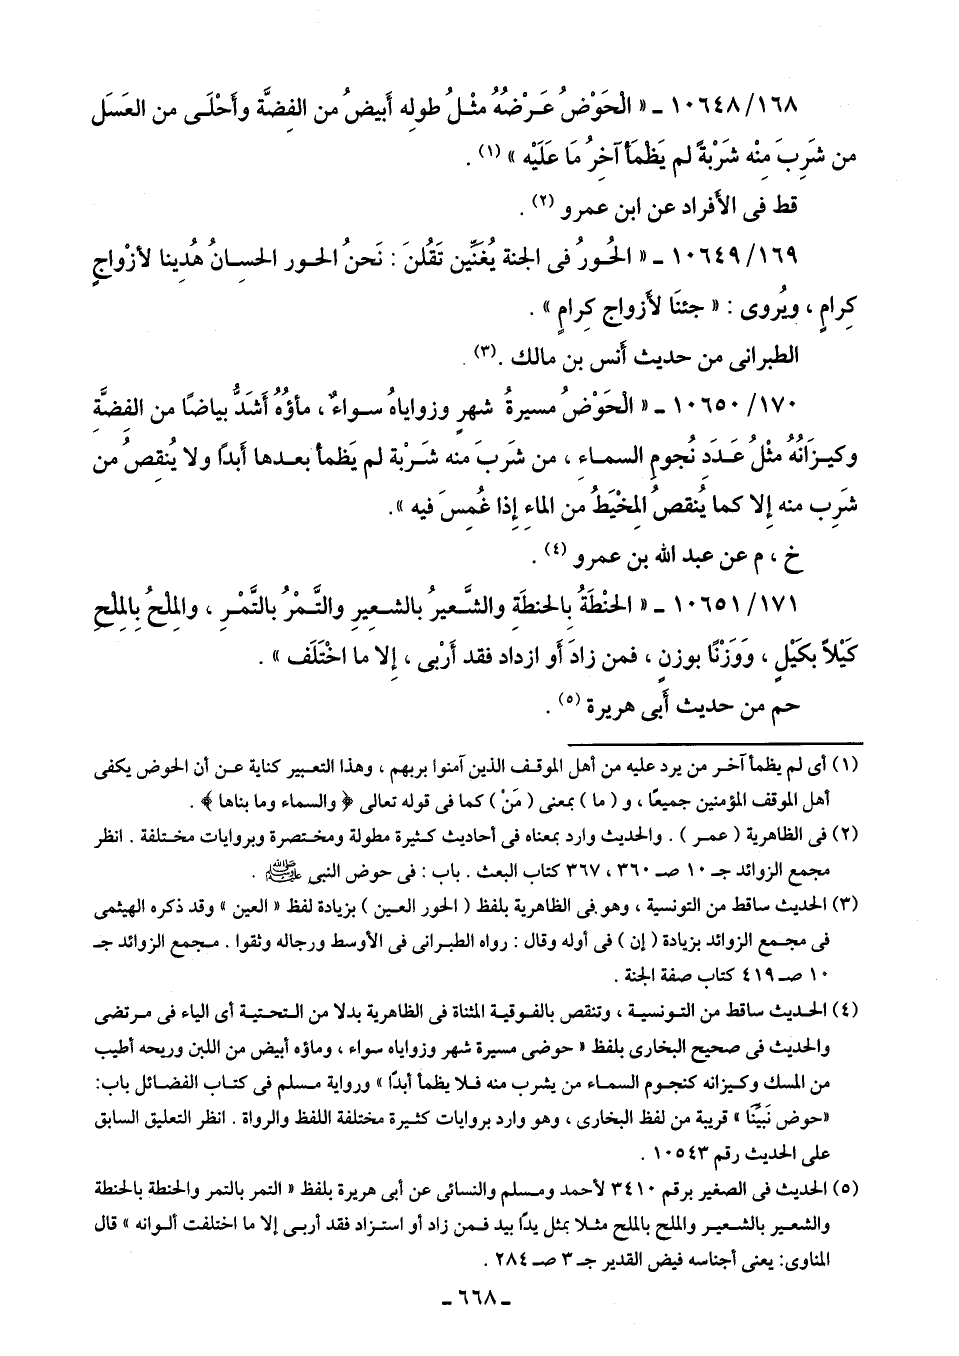 ١٠٦٤٨/١٦٨ ـ « الْحَوْضُ عَرْضُهُ مثْلُ طولِه أبيضُ من الفِضَّة وأحْلَى من العَسَل
من شَرِبَ مِنْه شَرْبَةً لم يَظْمَأ آخِرُ مَا عَلَيْه » (١) .
قط فى الأفراد عن ابن عمرو (٢) .
١٠٦٤٩/١٦٩ ـ « الحُورُ فى الجنة يُغَنِّين تَقُلنَ : نَحنُ الحور الحسانُ هُدِينا لأزْواجٍ
كِرامٍ ، ويُروى : « جئنَا لأزواج كِرامٍ » .
الطبرانى من حديث أَنس بن مالك .(٣) .
١٠٦٥٠/١٧٠ ـ « الْحَوْضُ مسيرةُ شهرٍ وزواياهُ سواءٌ، مأؤُهُ أَشَدُّ بياضًا من الفِضَّةِ
وكيزَانُهُ مثْلُ عَدَدِ نُجومِ السماءِ ، من شرِبَ منه شَربة لم يَظمأ بعدها أبدًا ولا يُنقِصُ من
شَرِب منه إلا كما يُنقصُ المِخْيَطُ من الماءِ إذا غُمِسَ فيه ».
خ ، م عن عبد الله بن عمرو (٤) .
١٠٦٥١/١٧١ ـ « الحنْطَةُ بالحنطَةِ والشَّعيرُ بالشعيرِ والتَّمْرُ بالتَّمْرِ ، والمِلْحُ بالمِلْحِ
كَيْلاً بكَيْلٍ ، وَوَزْنًا بوزنٍ ، فمن زادَ أو ازداد فقد أَرْبى ، إلا ما اخْتَلَف » .
حم من حديث أَبى هريرة (٥) .
(١) أى لم يظمأ آخر من يرد عليه من أهل الموقف الذين آمنوا بربهم ، وهذا التعبير كناية عن أن الحوض يكفى
أهل الموقف المؤمنين جميعًا ، و ( ما ) بمعنى ( مَنْ ) كما فى قوله تعالى ﴿ والسماء وما بناها ﴾ .
(٢) فى الظاهرية ( عمر ) . والحديث وارد بمعناه فى أحاديث كثيرة مطولة ومختصرة وبروايات مختلفة . انظر
مجمع الزوائد جـ ١٠ صـ ٣٦٠ ، ٣٦٧ كتاب البعث . باب : فى حوض النبى ﷺ .
(٣) الحديث ساقط من التونسية ، وهو فى الظاهرية بلفظ ( الحور العين ) بزيادة لفظ « العين » وقد ذكره الهيثمى
فى مجمع الزوائد بزيادة ( إن ) فى أوله وقال : رواه الطبرانى فى الأوسط ورجاله وثقوا . مجمع الزوائد جـ
١٠ صـ ٤١٩ كتاب صفة الجنة .
(٤) الحديث ساقط من التونسية ، وتنقص بالفوقية المثناة فى الظاهرية بدلا من التحتية أى الياء فى مرتضى
والحديث فى صحيح البخارى بلفظ « حوضى مسيرة شهر وزواياه سواء ، وماؤه أبيض من اللبن وريحه أطيب
من المسك وكيزانه كنجوم السماء من يشرب منه فلا يظمأ أبدًا » ورواية مسلم فى كتاب الفضائل باب:
«حوض نَبيِّنَا » قريبة من لفظ البخارى ، وهو وارد بروايات كثيرة مختلفة اللفظ والرواة . انظر التعليق السابق
على الحديث رقم ١٠٥٤٣ .
(٥) الحديث فى الصغير برقم ٣٤١٠ لأحمد ومسلم والنسائى عن أبى هريرة بلفظ « التمر بالتمر والحنطة بالحنطة
والشعير بالشعير والملح بالملح مثلا بمثل يدًا بيد فمن زاد أو استزاد فقد أربى إلا ما اختلفت ألوانه » قال
المناوى: يعنى أجناسه فيض القدير جـ ٣ صـ ٢٨٤ .
ـ ٦٦٨ ـ